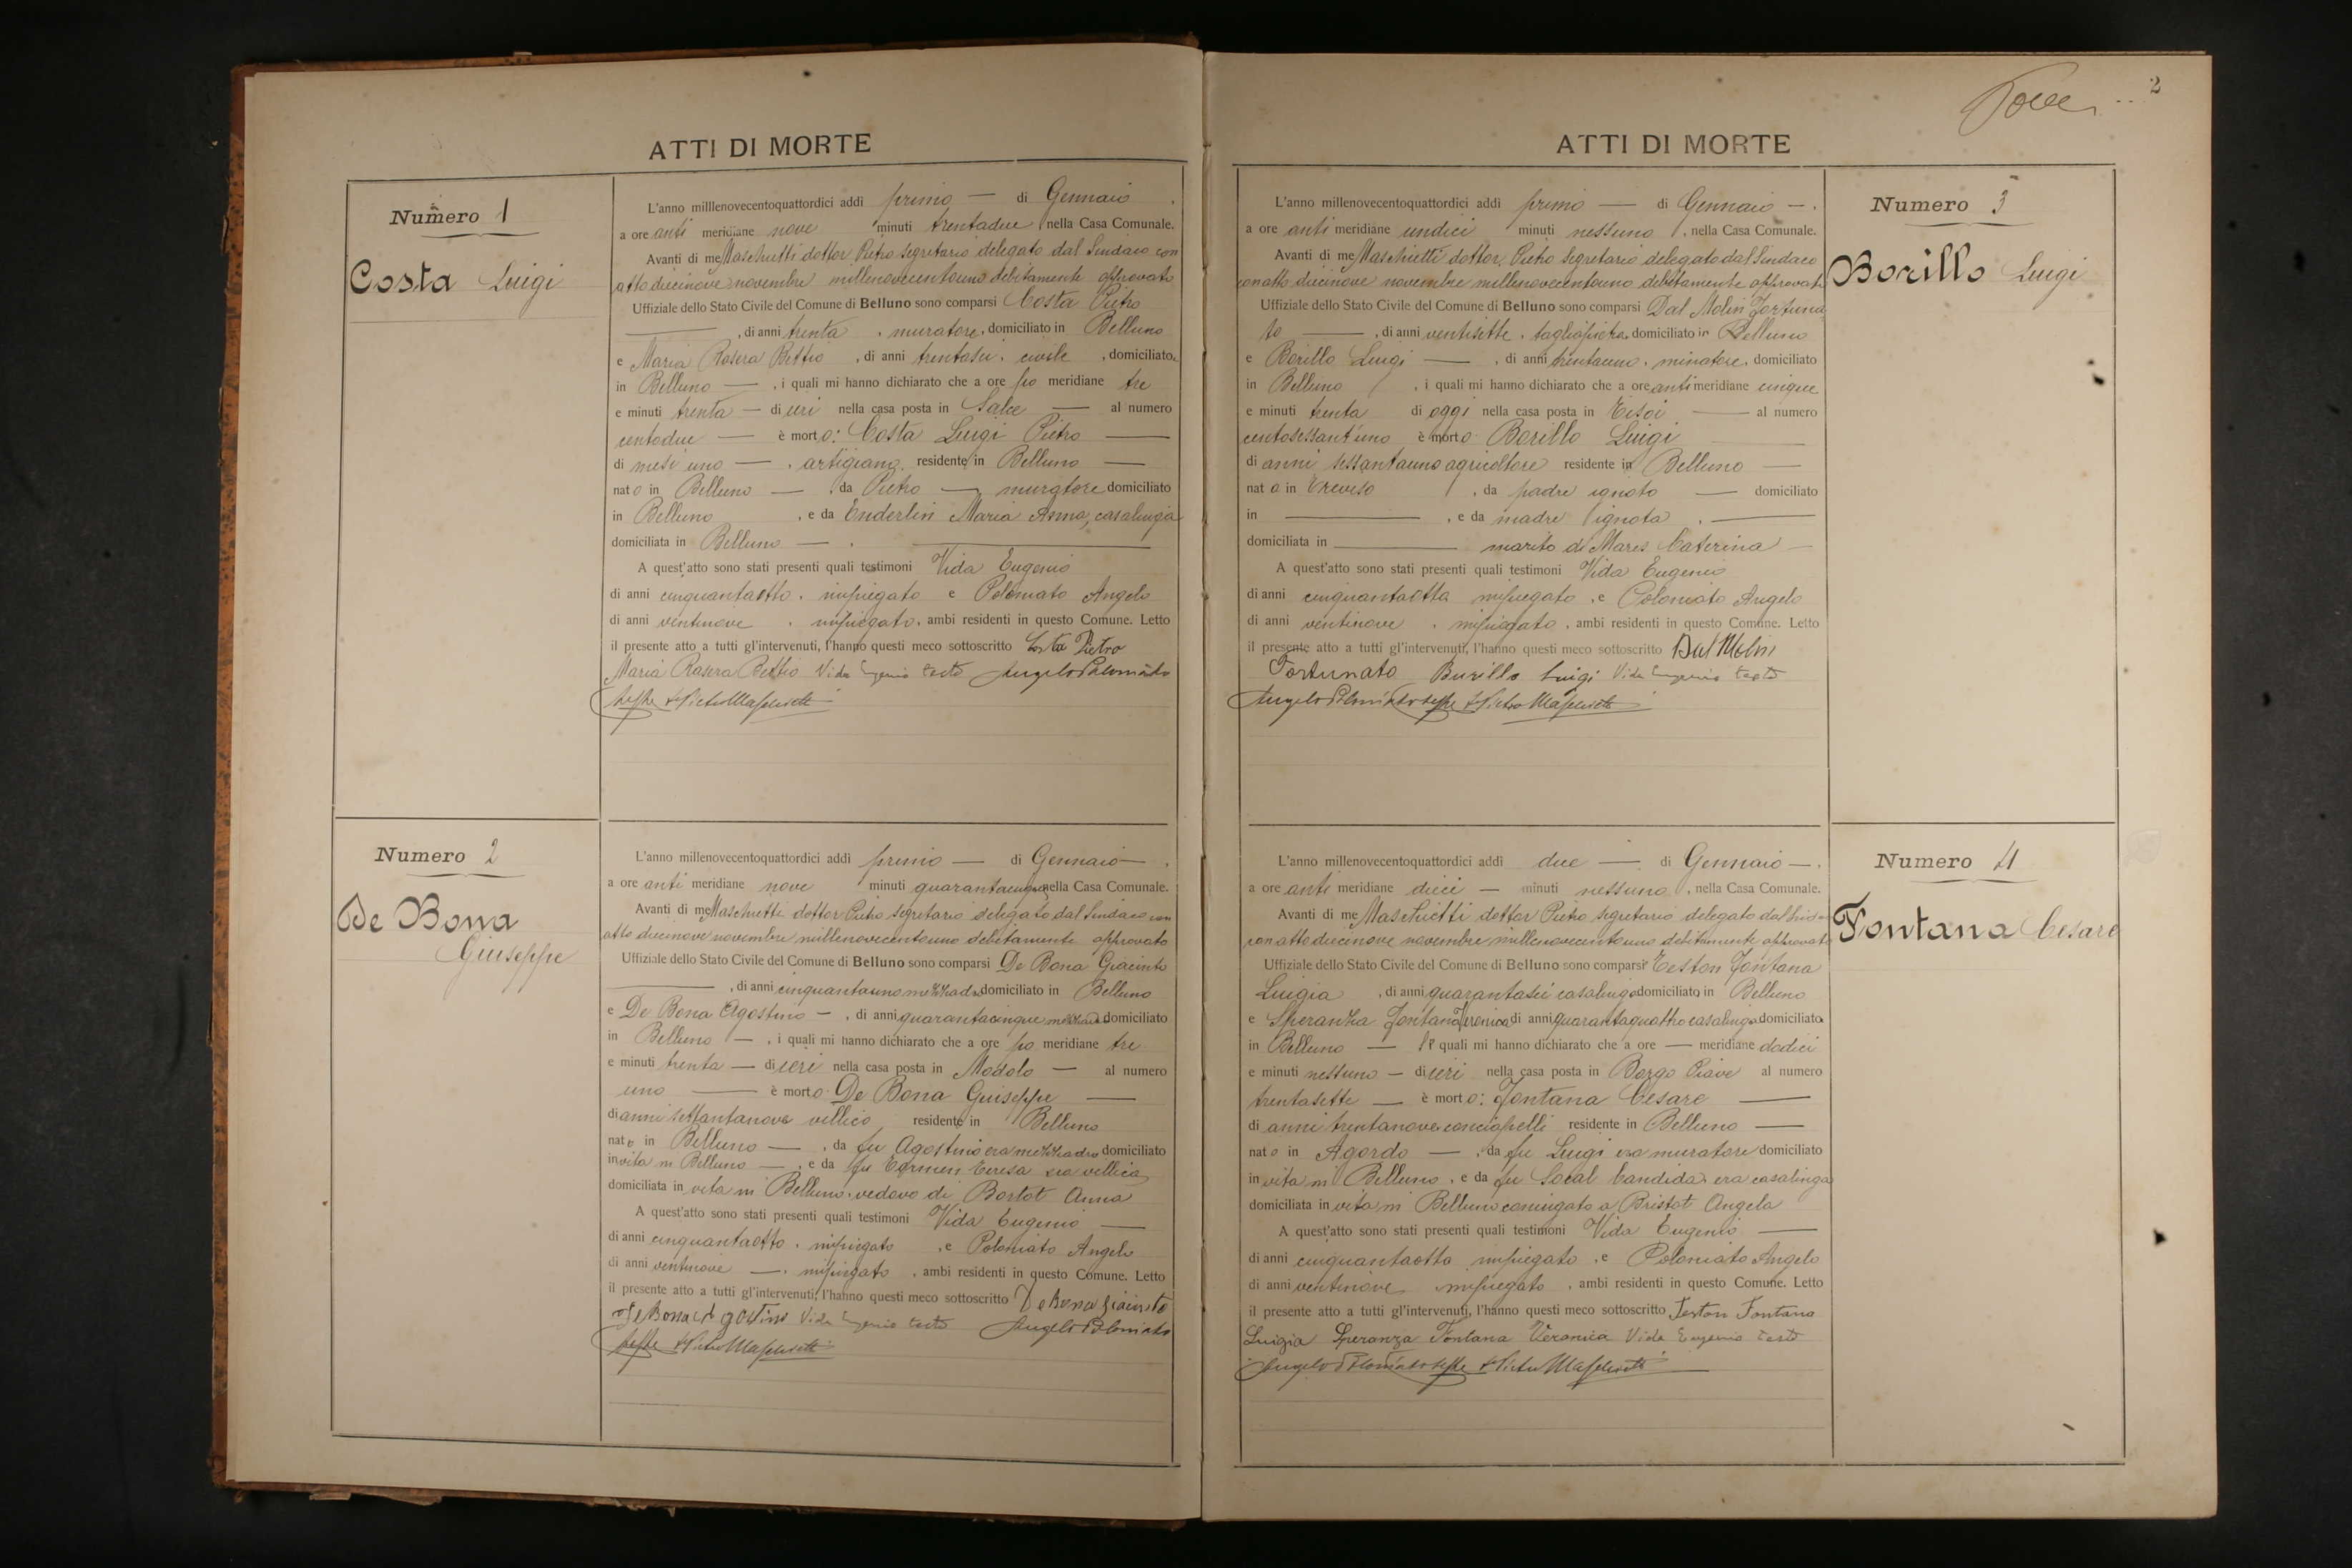 ATTI DI MORTE
Numero 1
Costa Luigi
L'anno milllenovecentoquattordici addì primo — di Gennaio .
a ore anti meridiane nove minuti trentadue nella Casa Comunale.
Avanti di me Maschietti dottor Pietro segretario delegato dal Sindaco con
atto diecinove novembre millenovecentouno debitamente approvato
Uffiziale dello Stato Civile del Comune di Belluno sono comparsi Costa Pietro
— , di anni trenta , muratore, domiciliato in Belluno
e Maria Rasera Bettio , di anni trentasei, civile , domiciliata
in Belluno — , i quali mi hanno dichiarato che a ore po meridiane tre
e minuti trenta — di ieri nella casa posta in Salce — al numero
centodue — è morto: Costa Luigi Pietro —
di mesi uno — , artigiano, residente in Belluno —
nato in Belluno — , da Pietro —, muratore domiciliato
in Belluno , e da Enderlin Maria Anna, casalinga
domiciliata in Belluno — .
A quest'atto sono stati presenti quali testimoni Vida Eugenio
di anni cinquantaotto , impiegato e Poloniato Angelo
di anni ventinove , impiegato, ambi residenti in questo Comune. Letto
il presente atto a tutti gl'intervenuti, l'hanno questi meco sottoscritto Costa Pietro
Maria Rasera Bettio Vida Eugenio teste Angelo Poloniato
teste Dr Pietro Maschietti
Numero 2
De Bona
Giuseppe
L'anno millenovecentoquattordici addì primo — di Gennaio — .
a ore anti meridiane nove minuti quarantacinque nella Casa Comunale.
Avanti di me Maschietti dottor Pietro segretario delegato dal Sindaco con
atto diecinove novembre millenovecentouno debitamente approvato
Uffiziale dello Stato Civile del Comune di Belluno sono comparsi De Bona Giacinto
— , di anni cinquantauno mezzadro domiciliato in Belluno
e De Bona Agostino — , di anni quarantacinque mezzadro domiciliato
in Belluno — , i quali mi hanno dichiarato che a ore po meridiane tre
e minuti trenta — di ieri nella casa posta in Modolo — al numero
uno — è morto: De Bona Giuseppe —
di anni settantanove villico residente in Belluno
nato in Belluno — , da fu Agostino era mezzadro domiciliato
in vita in Belluno — , e da fu Teresa era villica
domiciliata in vita in Belluno, vedovo di Bortot Anna
A quest'atto sono stati presenti quali testimoni Vida Eugenio —
di anni cinquantaotto , impiegato , e Poloniato Angelo
di anni ventinove — , impiegato , ambi residenti in questo Comune. Letto
il presente atto a tutti gl'intervenuti, l'hanno questi meco sottoscritto De Bona Giacinto
De Bona Agostino Vida Eugenio teste Angelo Poloniato
teste Dr Pietro Maschietti
2
ATTI DI MORTE
Numero 3
Borillo Luigi
L'anno millenovecentoquattordici addì primo — di Gennaio — .
a ore anti meridiane undici minuti nessuno , nella Casa Comunale.
Avanti di me Maschietti dottor Pietro segretario delegato dal Sindaco
con atto diecinove novembre millenovecentouno debitamente approvato
Uffiziale dello Stato Civile del Comune di Belluno sono comparsi Dal Molin Fortuna
to — , di anni ventisette , tagliapietra, domiciliato in Belluno
e Borillo Luigi — , di anni trentauno, minatore, domiciliato
in Belluno , i quali mi hanno dichiarato che a ore anti meridiane cinque
e minuti trenta di oggi nella casa posta in Tisoi — al numero
centosessant'uno è morto Borillo Luigi
di anni sessantauno agricoltore residente in Belluno —
nato in Treviso , da padre ignoto — domiciliato
in — , e da madre ignota , —
domiciliata in — marito di Mares Caterina —
A quest'atto sono stati presenti quali testimoni Vida Eugenio
di anni cinquantaotto impiegato , e Poloniato Angelo
di anni ventinove , impiegato , ambi residenti in questo Comune. Letto
il presente atto a tutti gl'intervenuti, l'hanno questi meco sottoscritto Dal Molin
Fortunato Burillo Luigi Vida Eugenio teste
Angelo Poloniato teste Dr Pietro Maschietti
Numero 4
Fontana Cesare
L'anno millenovecentoquattordici addì due — di Gennaio — .
a ore anti meridiane dieci — minuti nessuno , nella Casa Comunale.
Avanti di me Maschietti dottor Pietro segretario delegato dal
con atto diecinove novembre millenovecentouno debitamente approvato
Uffiziale dello Stato Civile del Comune di Belluno sono comparsi Teston Fontana
Luigia , di anni quarantasei casalinga domiciliata in Belluno
e Speranza Fontana Veronica di anni quarantaquattro casalinga domiciliata
in Belluno — le quali mi hanno dichiarato che a ore — meridiane dodici
e minuti nessuno — di ieri nella casa posta in Borgo Piave al numero
trentasette — è morto: Fontana Cesare —
di anni trentanove conciapelli residente in Belluno —
nato in Agordo — , da fu Luigi era muratore domiciliato
in vita in Belluno , e da fu Socal Candida era casalinga
domiciliata in vita in Belluno coniugato a Bristot Angela
A quest'atto sono stati presenti quali testimoni Vida Eugenio —
di anni cinquantaotto impiegato , e Poloniato Angelo
di anni ventinove impiegato , ambi residenti in questo Comune. Letto
il presente atto a tutti gl'intervenuti, l'hanno questi meco sottoscritto Teston Fontana
Luigia Speranza Fontana Veronica Vida Eugenio teste
Angelo Poloniato teste Dr Pietro Maschietti